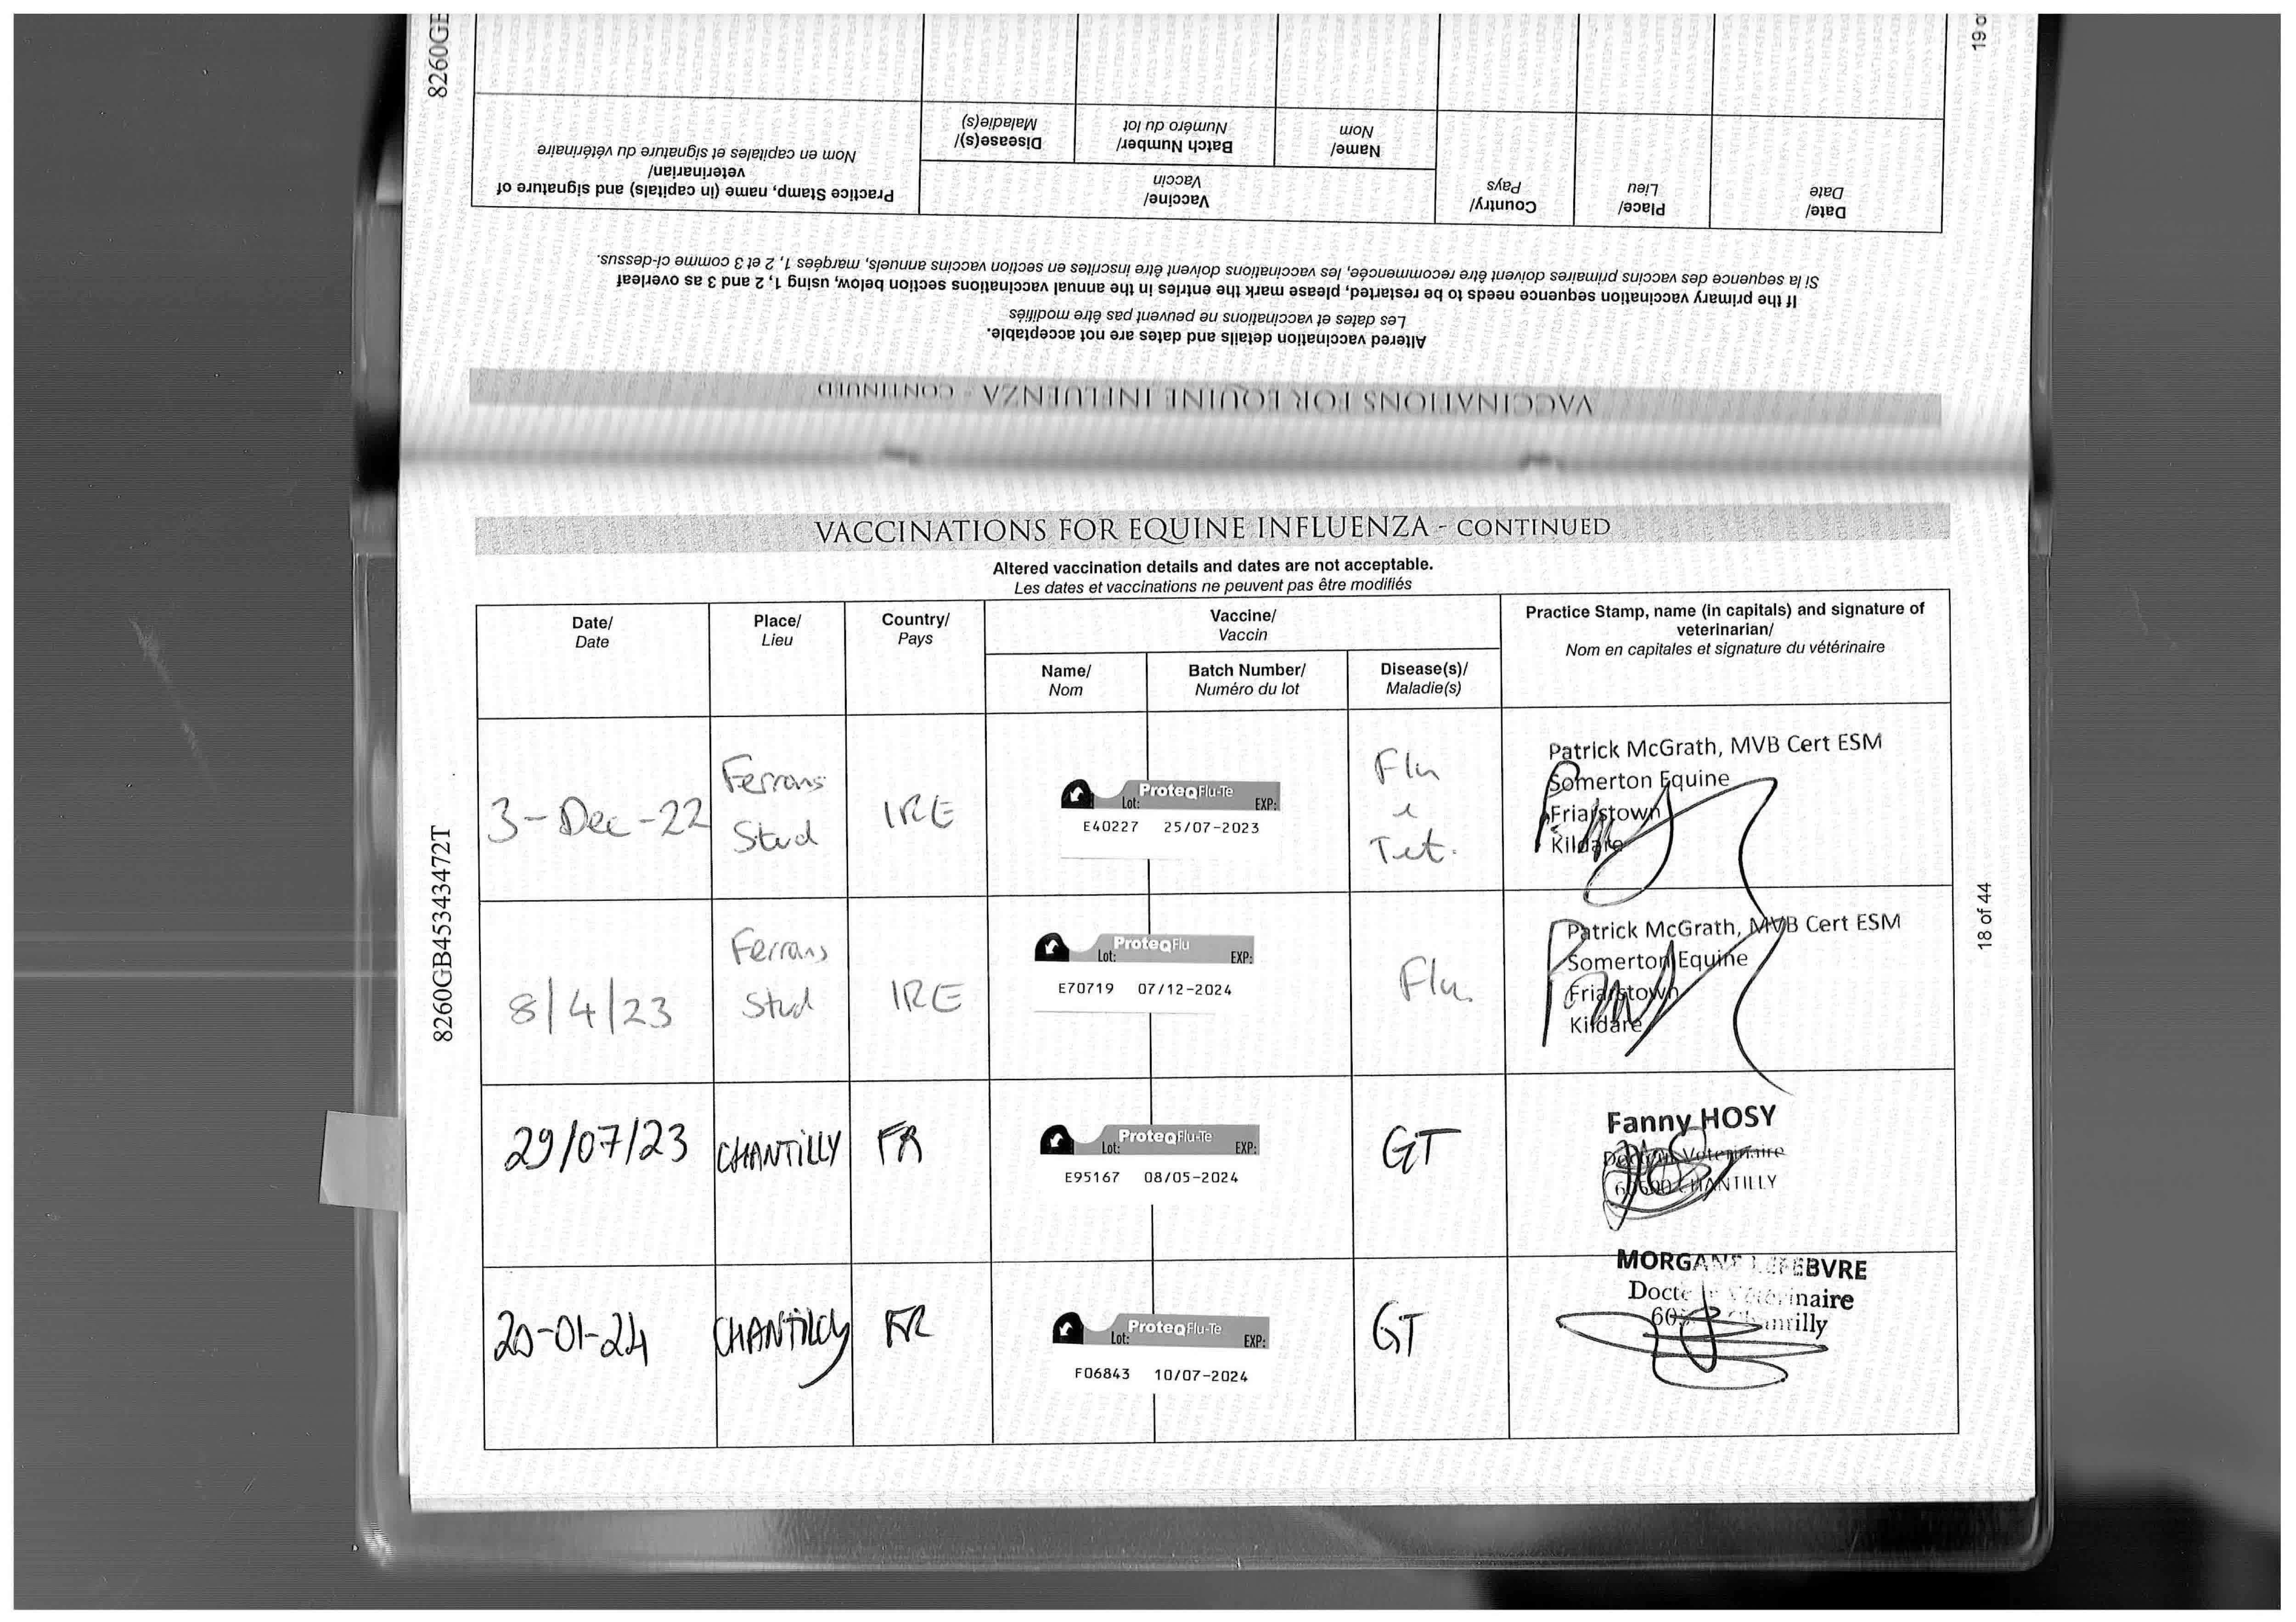 8260GB
19 o
Practice Stamp, name (in capitals) and signature of
veterinarian/
Nom en capitales et signature du vétérinaire
Vaccine/
Vaccin
Disease(s)/
Maladie(s)
Batch Number/
Numéro du lot
Name/
Nom
Country/
Pays
Place/
Lieu
Date/
Date
If the primary vaccination sequence needs to be restarted, please mark the entries in the annual vaccinations section below, using 1, 2 and 3 as overleaf
Si la sequence des vaccins primaires doivent être recommencée, les vaccinations doivent être inscrites en section vaccins annuels, margées 1, 2 et 3 comme ci-dessus.
Altered vaccination details and dates are not acceptable.
Les dates et vaccinations ne peuvent pas être modifiés
VACCINATIONS FOR EQUINE INFLUENZA - CONTINUED
VACCINATIONS FOR EQUINE INFLUENZA - CONTINUED
Altered vaccination details and dates are not acceptable.
Les dates et vaccinations ne peuvent pas être modifiés
Date/
Date
Place/
Lieu
Country/
Pays
Vaccine/
Vaccin
Name/
Nom
Batch Number/
Numéro du lot
Disease(s)/
Maladie(s)
Practice Stamp, name (in capitals) and signature of
veterinarian/
Nom en capitales et signature du vétérinaire
3-Dec-22
Ferrans
Stud
IRE
ProteqFlu-Te
Lot: EXP:
E40227 25/07-2023
Flu
&
Tet.
Patrick McGrath, MVB Cert ESM
Somerton Equine
Friarstown
Kildare
8/4/23
Ferrans
Stud
IRE
ProteqFlu
Lot: EXP:
E70719 07/12-2024
Flu.
Patrick McGrath, MVB Cert ESM
Somerton Equine
Friarstown
Kildare
29/07/23
CHANTILLY
FR
ProteqFlu-Te
Lot: EXP:
E95167 08/05-2024
GT
Fanny HOSY
Docteur Vétérinaire
60500 CHANTILLY
20-01-24
CHANTILLY
FR
ProteqFlu-Te
Lot: EXP:
F06843 10/07-2024
GT
MORGANE LEFEBVRE
Docteur Vétérinaire
Chantilly
8260GB45343472T
18 of 44